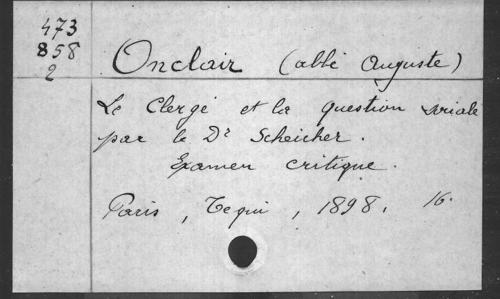 473
858
2
Onclair (abbé Auguste)
Le Clergé et la question sociale
par le Dr Scheicher.
Examen critique.
Paris, Tequi, 1898. 16.